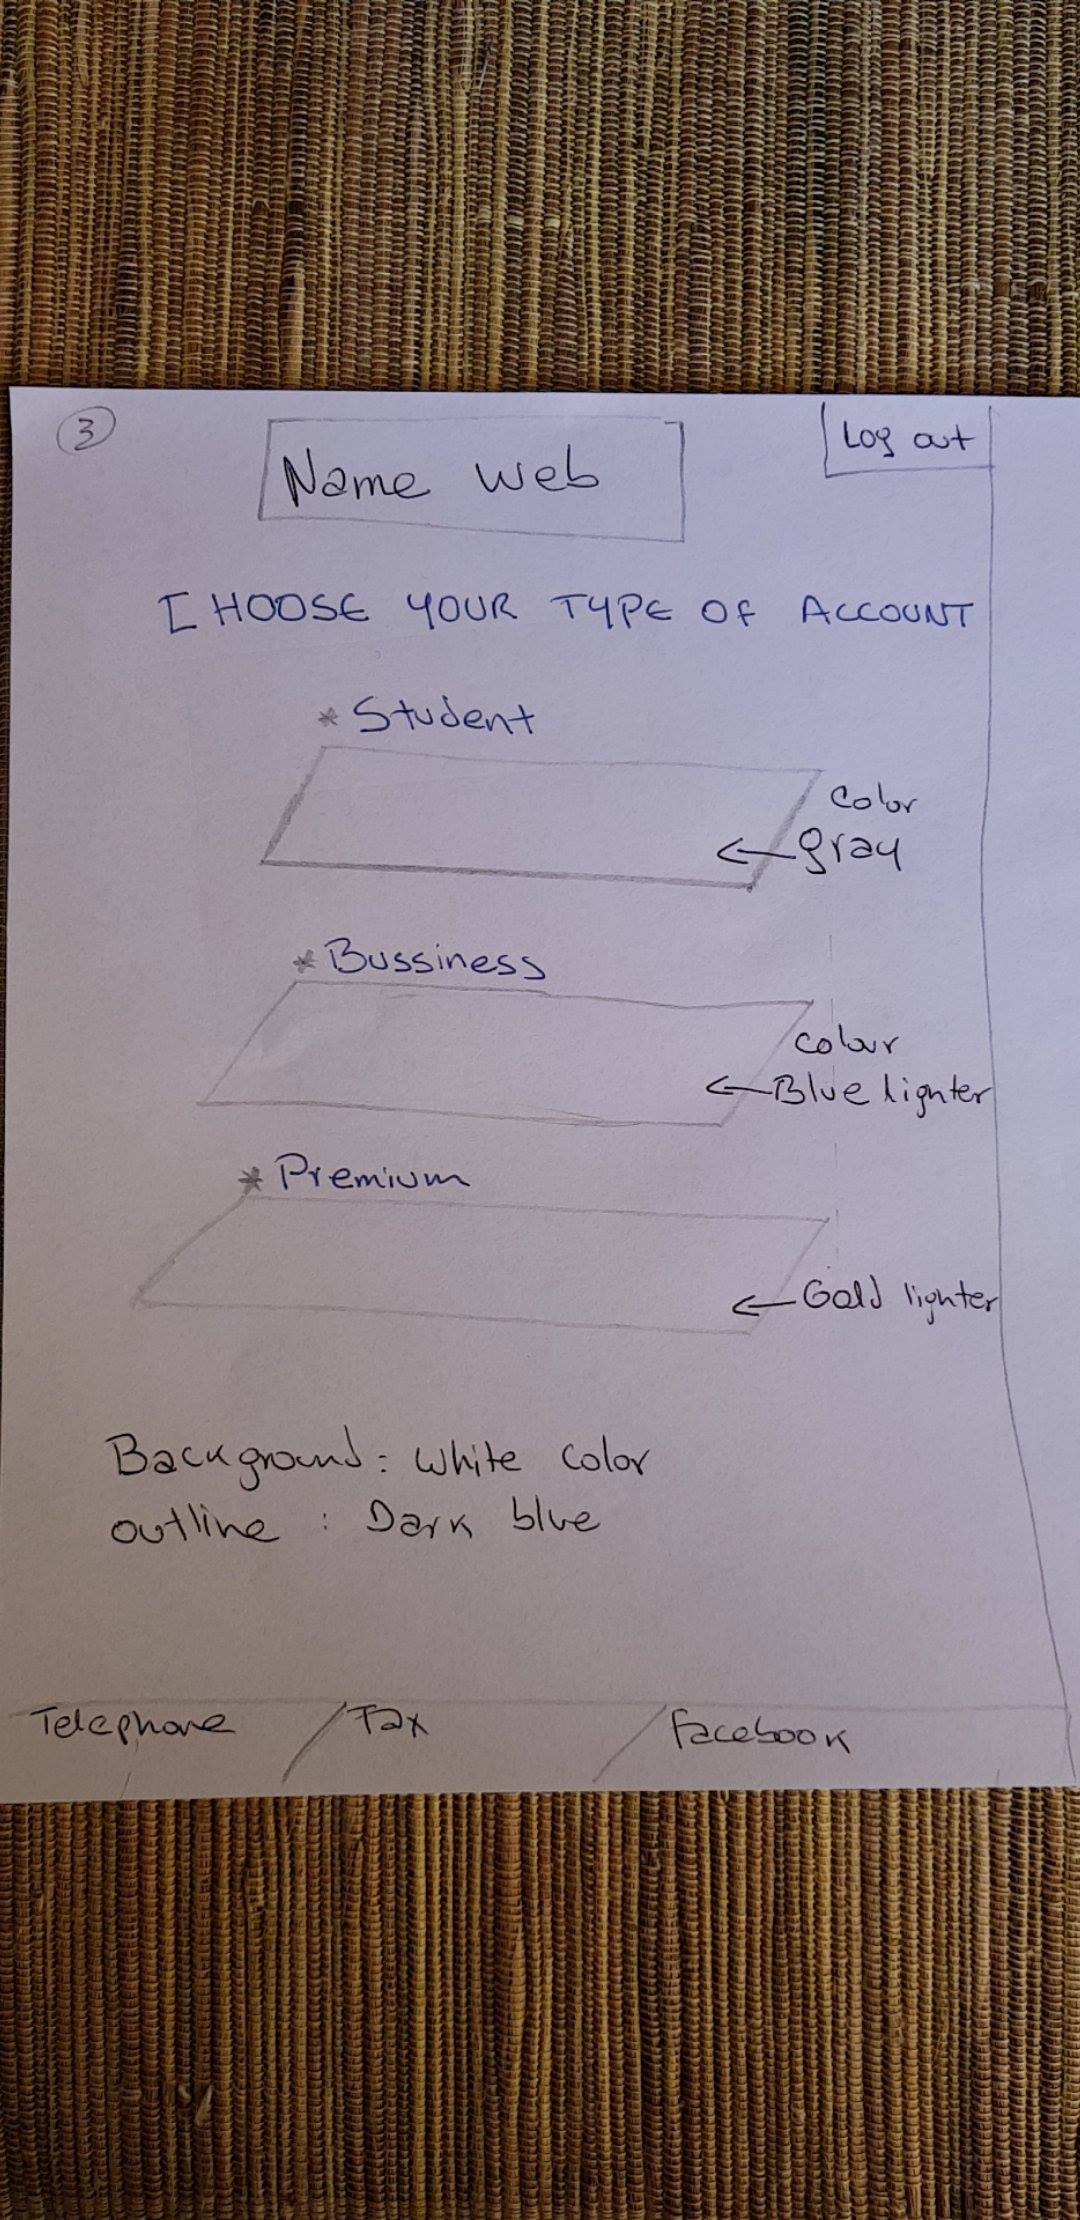 3
Name web
Log out
CHOOSE YOUR TYPE OF ACCOUNT
* Student
Color
← gray
* Bussiness
colour
← Blue lighter
* Premium
← Gold lighter
Background: white color
outline : Dark blue
Telephone / Fax / Facebook